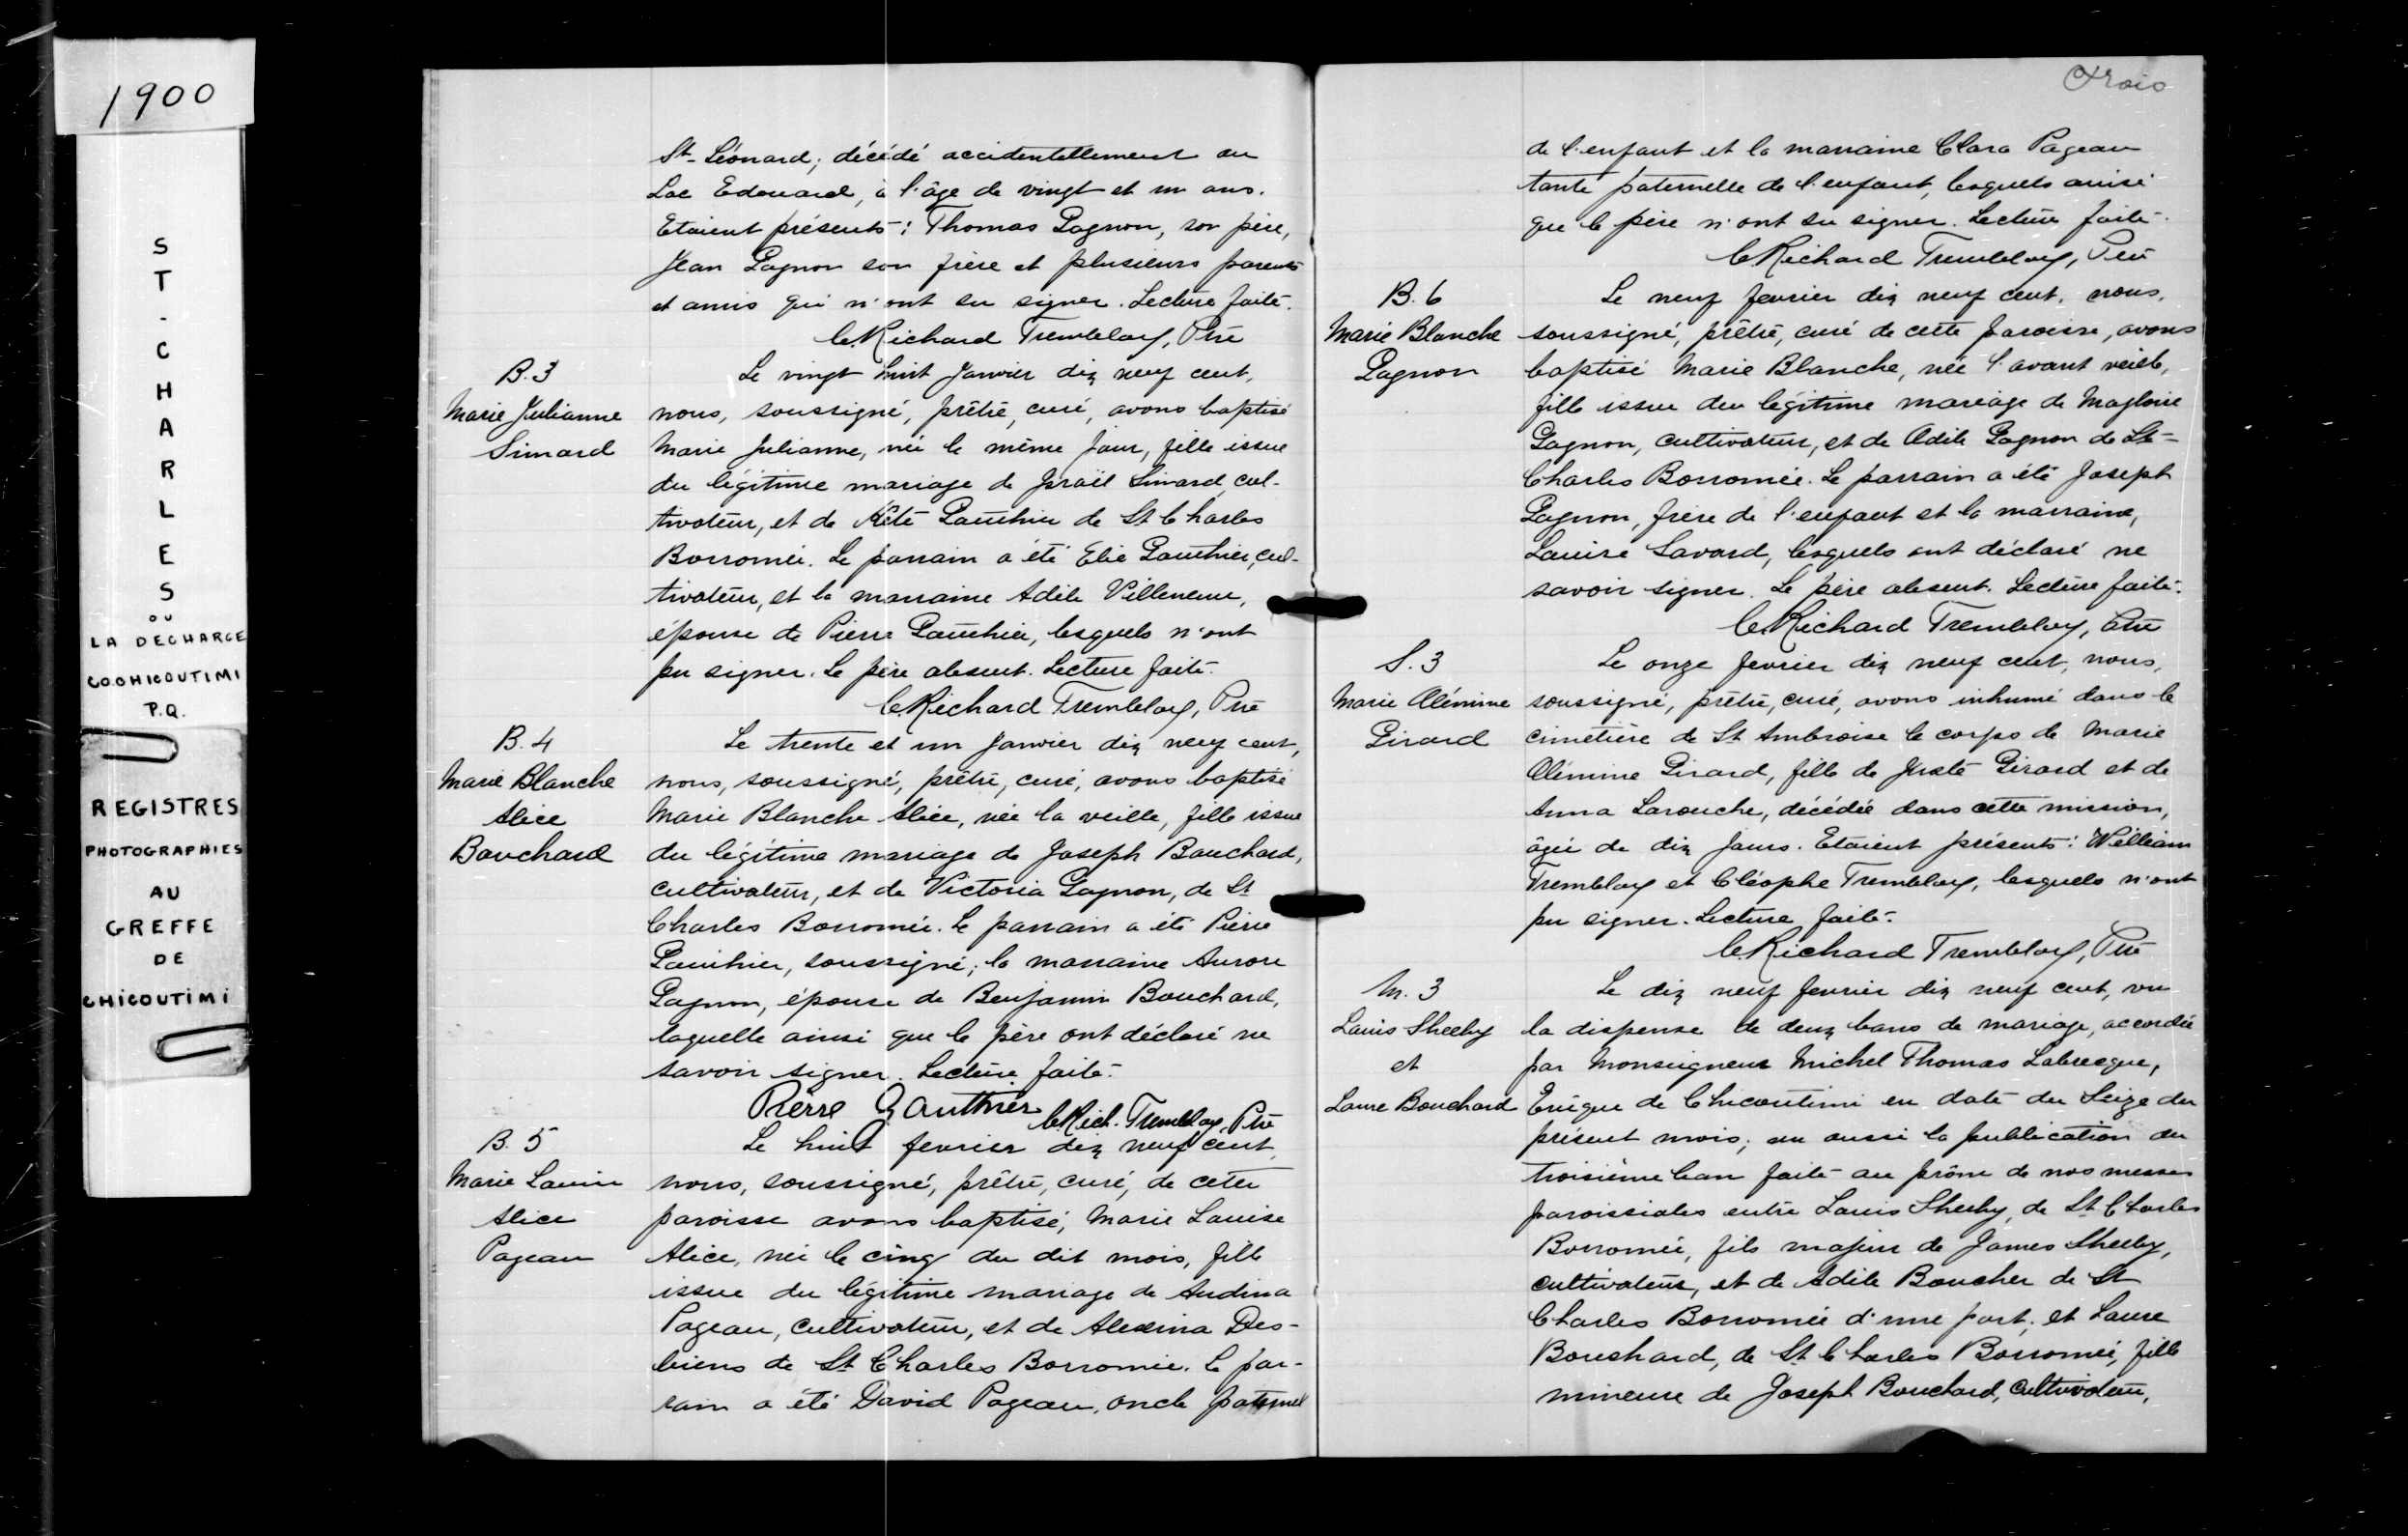 1900
ST-CHARLES
OU
LA DECHARGE
CO. CHICOUTIMI
P.Q.
REGISTRES
PHOTOGRAPHIES
AU
GREFFE
DE
CHICOUTIMI
St-Léonard; décédé accidentellement au
Lac Edouard, à l'âge de vingt et un ans.
Etaient présents: Thomas Gagnon, son père,
Jean Gagnon son frère et plusieurs parents
et amis qui n'ont su signer. Lecture faite.
Richard Tremblay, Ptre
B.3
Marie Julianne
Simard
Le vingt huit Janvier dix neuf cent,
nous, soussigné, prêtre, curé, avons baptisé
Marie Julianne, née le même jour, fille issue
du légitime mariage de Israël Simard, cul-
tivateur, et de Gauthier de St Charles
Borromée. Le parrain a été Elie Gauthier, cul-
tivateur, et la marraine Adèle Villeneuve,
épouse de Pierre Gauthier, lesquels n'ont
pu signer. Le père absent. Lecture faite.
Richard Tremblay, Ptre
B.4
Marie Blanche
Alice
Bouchard
Le trente et un Janvier dix neuf cent,
nous, soussigné, prêtre, curé, avons baptisé
Marie Blanche Alice, née la veille, fille issue
du légitime mariage de Joseph Bouchard,
cultivateur, et de Victoria Gagnon, de St
Charles Borromée. Le parrain a été Pierre
Gauthier, soussigné; la marraine Aurore
Gagnon, épouse de Benjamin Bouchard,
laquelle ainsi que le père ont déclaré ne
savoir signer. Lecture faite.
Pierre Gauthier
Rich. Tremblay, Ptre
B.5
Marie Louise
Alice
Pageau
Le huit fevrier dix neuf cent,
nous, soussigné, prêtre, curé, de cette
paroisse avons baptisé, Marie Louise
Alice, née le cinq du dit mois, fille
issue du légitime mariage de Audina
Pageau, cultivateur, et de Alexina Des-
biens de St Charles Borromée. Le par-
rain a été David Pageau, oncle paternel
Trois
de l'enfant et la marraine Clara Pageau
tante paternelle de l'enfant, lesquels ainsi
que le père n'ont su signer. Lecture faite.
Richard Tremblay, Ptre
B.6
Marie Blanche
Gagnon
Le neuf fevrier dix neuf cent, nous,
soussigné, prêtre, curé de cette paroisse, avons
baptisé Marie Blanche, née l'avant veille,
fille issue du légitime mariage de Magloire
Gagnon, cultivateur, et de Odile Gagnon de St-
Charles Borromée. Le parrain a été Joseph
Gagnon, frère de l'enfant et la marraine,
Louise Savard, lesquels ont déclaré ne
savoir signer. Le père absent. Lecture faite.
Richard Tremblay, Ptre
S.3
Marie Clémine
Girard
Le onze fevrier dix neuf cent, nous,
soussigné, prêtre, curé, avons inhumé dans le
cimetière de St Ambroise le corps de Marie
Clémine Girard, fille de Juste Girard et de
Anna Larouche, décédée dans cette mission,
âgée de dix jours. Etaient présents: William
Tremblay et Cléophe Tremblay, lesquels n'ont
pu signer. Lecture faite.
Richard Tremblay, Ptre
M.3
Louis Sheehy
et
Laure Bouchard
Le dix neuf fevrier dix neuf cent, vu
la dispense de deux bans de mariage, accordée
par Monseigneur Michel Thomas Labrecque,
Evêque de Chicoutimi en date du Seize du
présent mois; vu aussi la publication du
troisième ban faite au prône de nos messes
paroissiales entre Louis Sheehy, de St Charles
Borromée, fils majeur de James Sheehy,
cultivateur, et de Adèle Boucher de St
Charles Borromée d'une part; et Laure
Bouchard, de St Charles Borromée, fille
mineure de Joseph Bouchard, cultivateur,